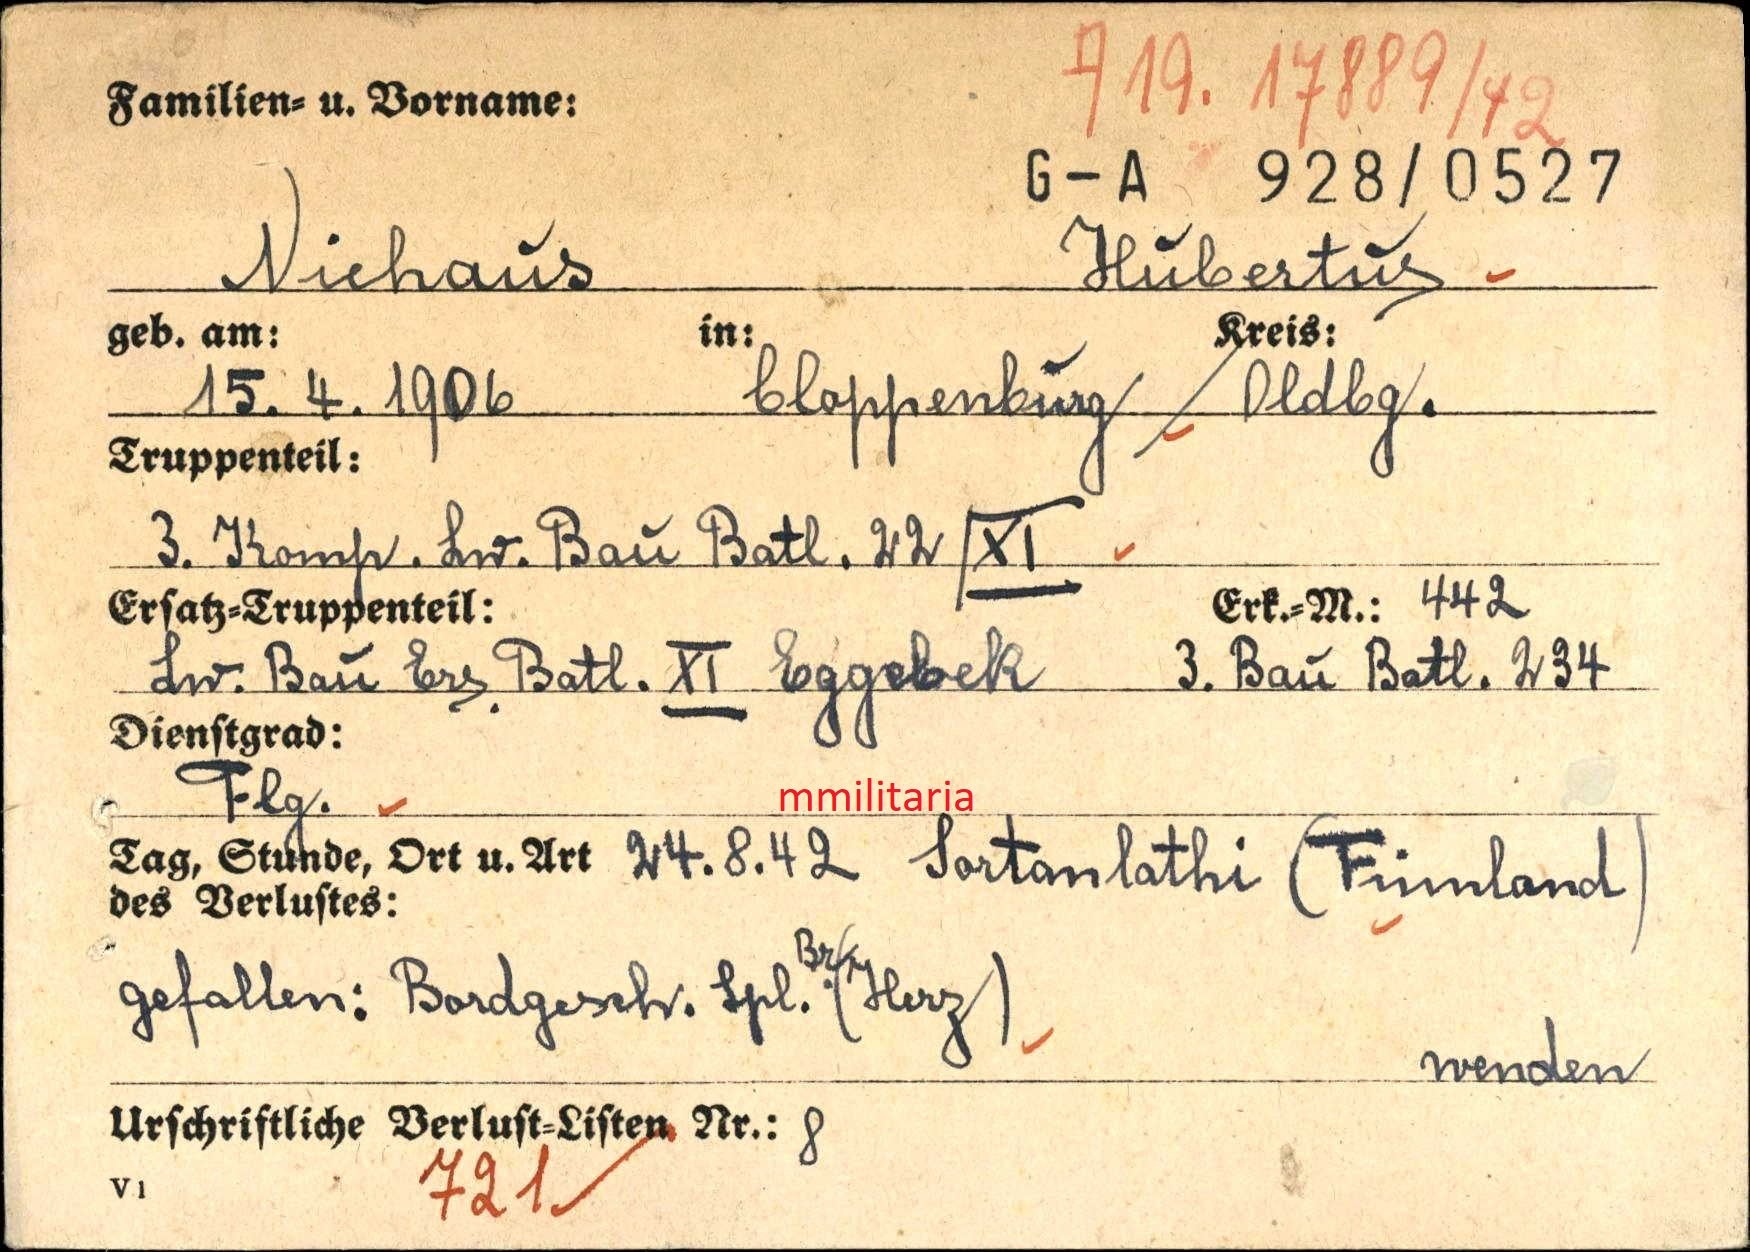 A 19. 17889/42
Familien- u. Vorname:
G-A 928/0527
Niehaus Hubertus
geb. am: in: Kreis:
15. 4. 1906 Cloppenburg / Oldbg.
Truppenteil:
3. Komp. Lw. Bau Batl. 22/XI
Ersatz-Truppenteil: Erk.-M.: 442
Lw. Bau Ers. Batl. XI Eggebek 3. Bau Batl. 234
Dienstgrad:
Flg.
mmilitaria
Tag, Stunde, Ort u. Art 24.8.42 Sortanlathi (Finnland)
des Verlustes:
gefallen: Bordgesch. Spl. Br. (Herz)
wenden
Urschriftliche Verlust-Listen Nr.: 8
721
V 1